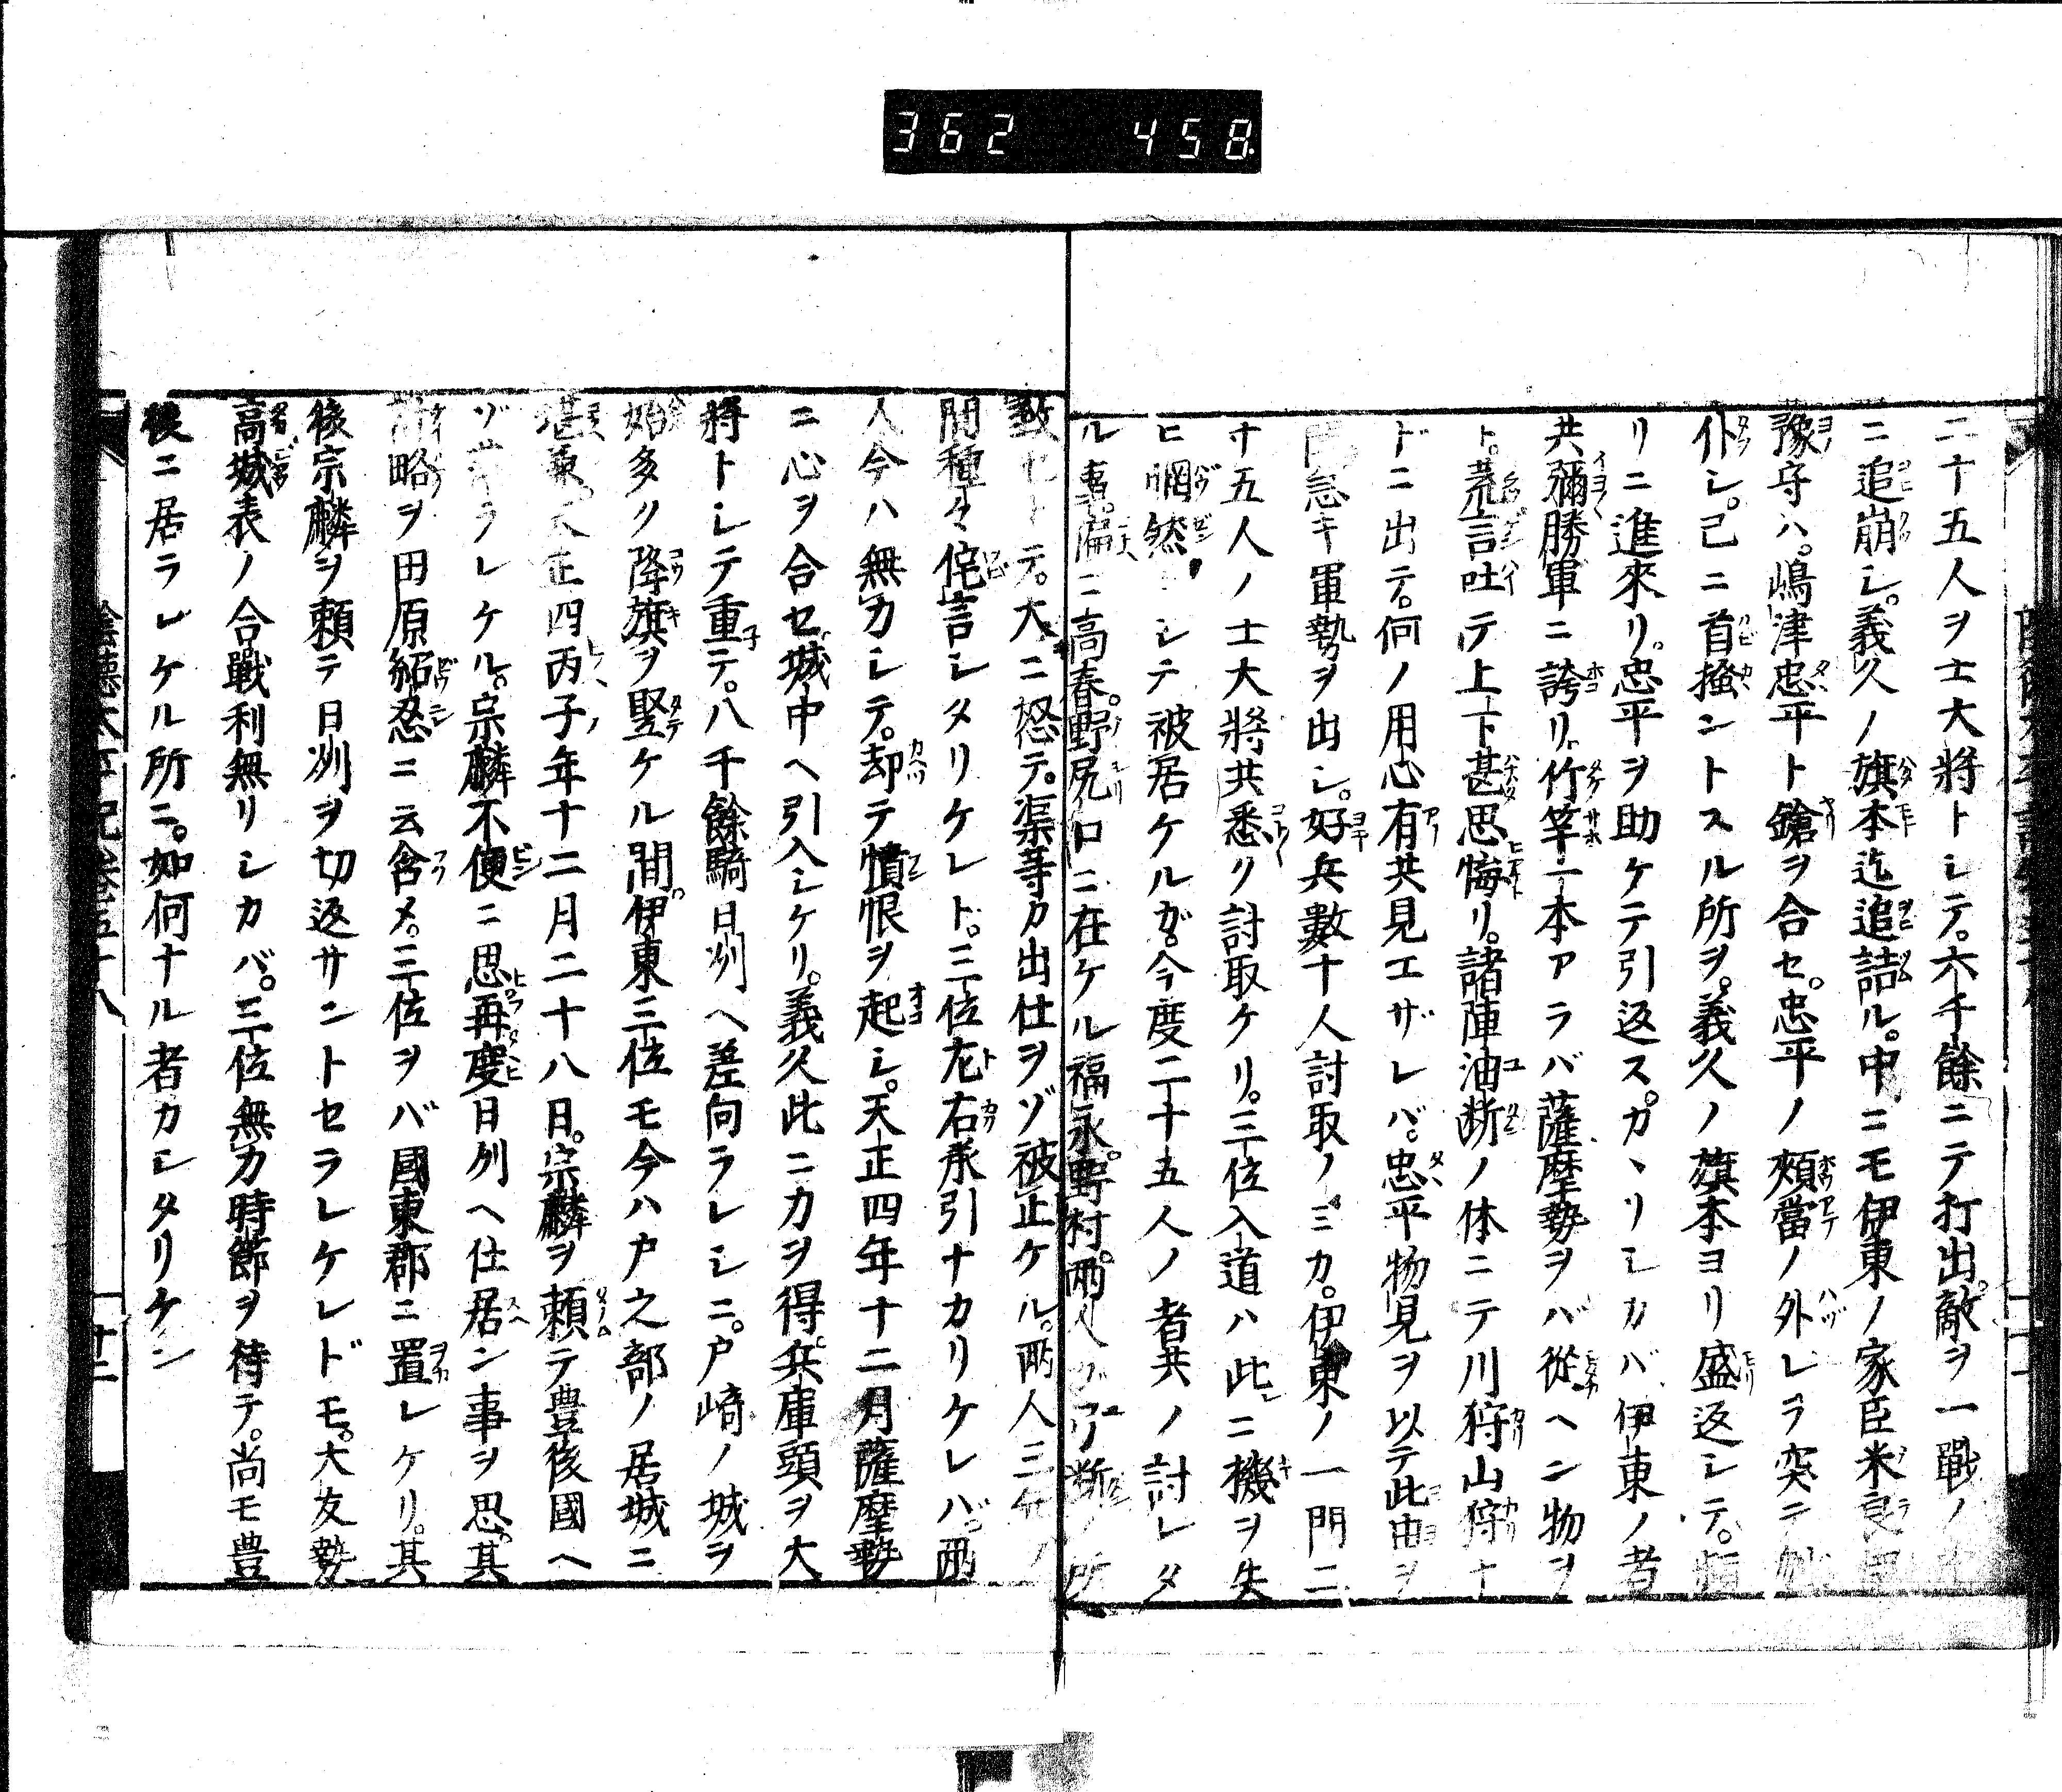 362 458
二十五人ヲ士大將トシテ。六千餘ニテ打出。敵ヲ一戰ノ
ニ追崩シ。義久ノ旗本迄追詰ル。中ニモ伊東ノ家臣米良
豫守ハ。嶋津忠平ト鎗ヲ合セ。忠平ノ頰當ノ外レヲ突ニ
仆シ。已ニ首搔ントスル所ヲ。義久ノ旗本ヨリ盛返シテ。頻
リニ進來リ。忠平ヲ助ケテ引返ス。カヽリシカバ伊東ノ者
共彌勝軍ニ誇リ。竹竿一本アラバ薩摩勢ヲバ從ヘン物ヲ
ト。荒言吐テ上下甚思侮リ。諸陣油断ノ体ニテ川狩山狩ナ
ドニ出テ。何ノ用心有共見エザレバ。忠平物見ヲ以テ此由ヲ
急キ軍勢ヲ出シ。好兵數十人討取ノミカ。伊東ノ一門二
十五人ノ士大將共悉ク討取ケリ。三位入道ハ此ニ機ヲ失
ヒ惘然シテ被居ケルガ。今度二十五人ノ者共ノ討レタ
ル事。偏ニ高春。野尻口ニ在ケル福永。野村。兩人ガ断ノ所
致セトテ。大ニ怒テ。渠等カ出仕ヲゾ被止ケル。兩人三年ノ
間種々侘言シタリケレト。三位左右承引ナカリケレバ。兩
人今ハ無力シテ。却テ憤恨ヲ起シ。天正四年十二月薩摩勢
ニ心ヲ合セ城中ヘ引入シケリ。義久此ニカヲ得。兵庫頭ヲ大
將トシテ重テ。八千餘騎日州ヘ差向ラレシニ。戸﨑ノ城ヲ
始多ク降旗ヲ竪ケル間。伊東三位モ今ハ戸之部ノ居城ニ
堪兼。天正四丙子年十二月二十八日。宗麟ヲ頼テ豊後國ヘ
ゾラレケル。宗麟不便ニ思再度日州ヘ仕居ン事ヲ思。其
略ヲ田原紹忍ニ云含メ。三位ヲバ國東郡ニ置レケリ。其
後宗麟ヲ頼テ日州ヲ切返サントセラレケレドモ。大友勢
高城表ノ合戰利無リシカバ。三位無力時節ヲ待テ。尚モ豊
後ニ居ラレケル所ニ。如何ナル者カシタリケン
陰德太平記卷五十八
十二